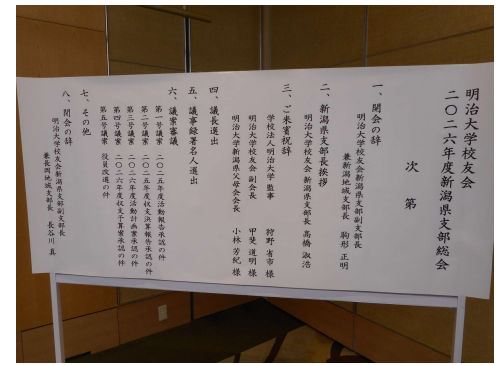 明治大学校友会
二〇二六年度新潟県支部総会
次 第
一、開会の辞
明治大学校友会新潟県支部副支部長
兼新潟地域支部長 駒形 正明
二、新潟県支部長挨拶
明治大学校友会 新潟県支部長 高橋 淑浩
三、ご来賓祝辞
学校法人明治大学 監事 狩野 省市 様
明治大学校友会 副会長 甲斐 道明 様
明治大学新潟県父母会会長 小林 芳紀 様
四、議長選出
五、議事録署名人選出
六、議案審議
第一号議案 二〇二五年度活動報告承認の件
第二号議案 二〇二五年度収支決算報告承認の件
第三号議案 二〇二六年度活動計画案承認の件
第四号議案 二〇二六年度収支予算案承認の件
第五号議案 役員改選の件
七、その他
八、閉会の辞
明治大学校友会新潟県支部副支部長
兼長岡地域支部長 長谷川 真